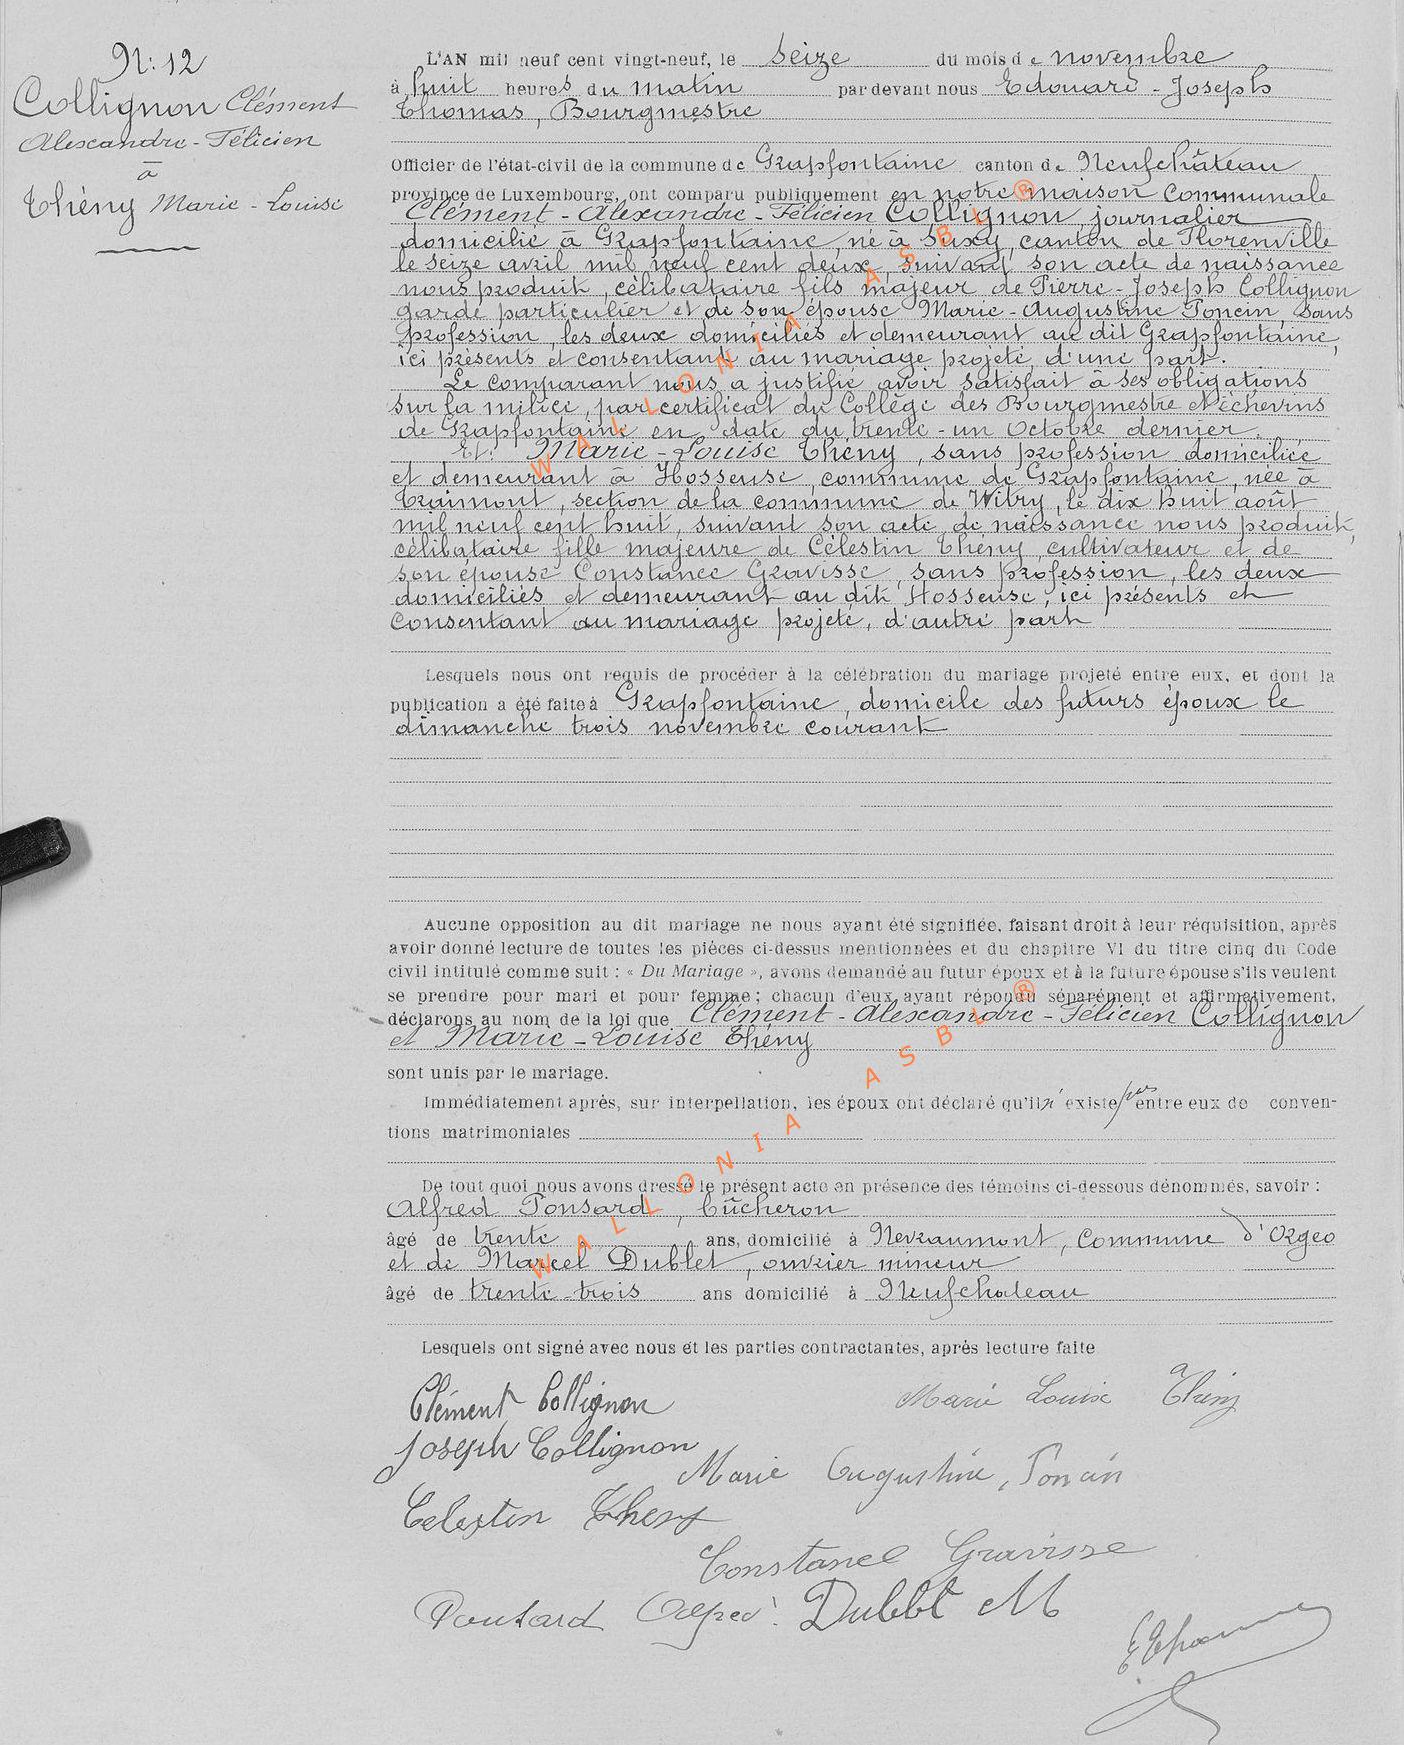 N: 12
Collignon Clément
Alexandre-Félicien
à
Thény Marie-Louise
L'AN mil neuf cent vingt-neuf, le seize du mois de novembre
à huit heures du matin par devant nous Edouard-Joseph
Thomas, Bourgmestre
Officier de l'état-civil de la commune de Grapfontaine canton de Neufchâteau
province de Luxembourg, ont comparu publiquement en notre maison Communale
Clément-Alexandre-Félicien Collignon, journalier
domicilié à Grapfontaine, né à Suxy, canton de Florenville
le seize avril mil neuf cent deux, suivant son acte de naissance
nous produit, célibataire fils majeur de Pierre-Joseph Collignon
garde particulier et de son épouse Marie-Augustine Poncin, sans
profession, les deux domiciliés et demeurant au dit Grapfontaine,
ici présents et consentant au mariage projeté, d'une part.
Le comparant nous a justifié avoir satisfait à ses obligations
sur la milice, par certificat du Collège des Bourgmestre et échevins
de Grapfontaine en date du trente-un Octobre dernier.
Et: Marie-Louise Thény, sans profession domiciliée
et demeurant à Hosseuse, commune de Grapfontaine, née à
Traimont, section de la commune de Witry, le dix huit août
mil neuf cent huit, suivant son acte de naissance nous produit,
célibataire fille majeure de Célestin Thény, cultivateur et de
son épouse Constance Gravisse, sans profession, les deux
domiciliés et demeurant au dit Hosseuse, ici présents et
consentant au mariage projeté, d'autre part
Lesquels nous ont requis de procéder à la célébration du mariage projeté entre eux, et dont la
publication a été faite à Grapfontaine, domicile des futurs époux le
dimanche trois novembre courant
Aucune opposition au dit mariage ne nous ayant été signifiée, faisant droit à leur réquisition, après
avoir donné lecture de toutes les pièces ci-dessus mentionnées et du chapitre VI du titre cinq du Code
civil intitulé comme suit : « Du Mariage », avons demandé au futur époux et à la future épouse s'ils veulent
se prendre pour mari et pour femme ; chacun d'eux ayant répondu séparément et affirmativement,
déclarons au nom de la loi que Clément-Alexandre-Félicien Collignon
et Marie-Louise Thény
sont unis par le mariage.
Immédiatement après, sur interpellation, les époux ont déclaré qu'il n'existe pas entre eux de conven-
tions matrimoniales
De tout quoi nous avons dressé le présent acte en présence des témoins ci-dessous dénommés, savoir :
Alfred Ponsard, bûcheron
âgé de trente ans, domicilié à Nevraumont, Commune d'Orgeo
et de Marcel Dublet, ouvrier mineur
âgé de trente-trois ans domicilié à Neufchateau
Lesquels ont signé avec nous et les parties contractantes, après lecture faite
Clément Collignon Marie Louise Thény
Joseph Collignon
Marie Augustine Poncin
Celestin Theny
Constance Gravisse
Ponsard Alfred Dublet M
EThomas
WALLONIA ASBL ®
WALLONIA ASBL ®